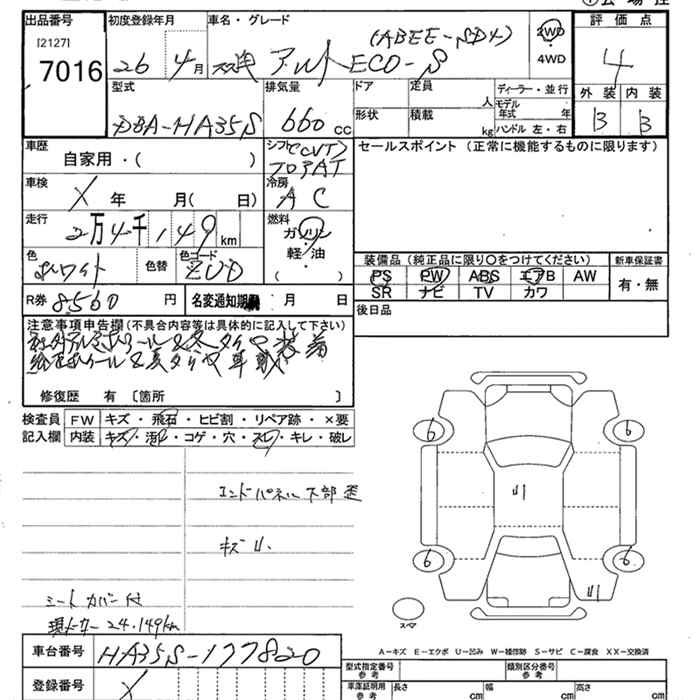 出品番号
[2127]
7016
初度登録年月
26年4月
車名・グレード
(ABEE-SD4)
スズキ アルトECO-S
2WD
・
4WD
評価点
4
外装 内装
B B
型式
DBA-HA35S
排気量
660cc
ドア
定員
人
形状
積載
kg
ディーラー・並行
モデル年式 年
ハンドル 左・右
車歴
自家用・( )
シフト(CVT)
冷房
AC
車検
X 年 月( 日)
走行
2万4千149km
燃料
ガソリン
軽・油
( )
色
ホワイト
色替
色コード
ZUD
セールスポイント(正常に機能するものに限ります)
装備品(純正品に限り○をつけてください)
PS PW ABS エアB AW
SR ナビ TV カワ
新車保証書
有・無
R券 8560円
名変通知期 月 日
後日品
注意事項申告欄(不具合内容等は具体的に記入して下さい)
社外アルミホイール&冬タイヤ装着
純正ホイール&夏タイヤ車載
修復歴 有〔箇所 〕
検査員 FW キズ・飛石・ヒビ割・リペア跡・×要
記入欄 内装 キズ・汚レ・コゲ・穴・スレ・キレ・破レ
エンドパネル下部歪
キズ U.
シートカバー付
現メーター24.149km
6 6
U1
6 6
U1
スペア
A-キズ E-エクボ U-凹み W-補修跡 S-サビ C-腐食 XX-交換済
車台番号 HA35S-177820
登録番号 X
型式指定番号 参考
類別区分番号 参考
車庫証明用 参考
長さ cm
幅 cm
高さ cm